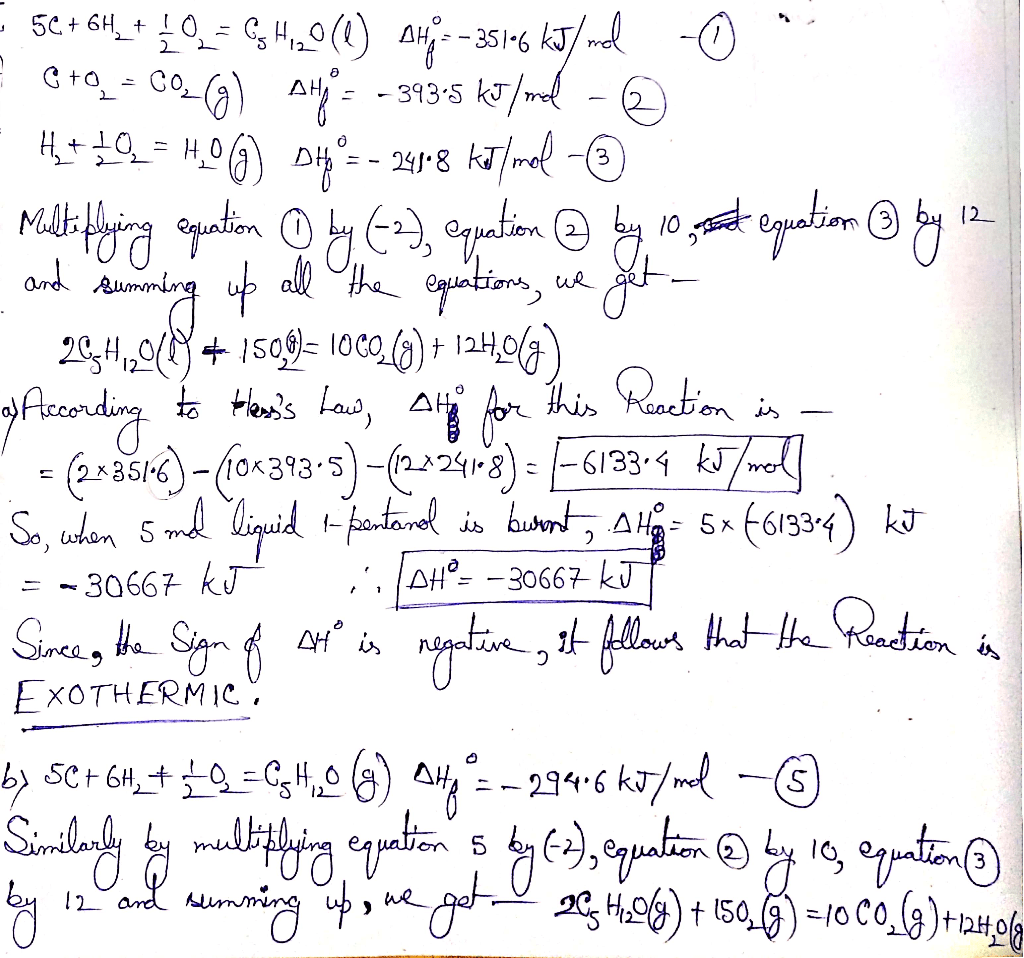 5C + 6H₂ + 1/2 O₂ = C₅H₁₂O(l) ΔHf° = -351.6 kJ/mol - ①
C + O₂ = CO₂(g) ΔHf° = -393.5 kJ/mol - ②
H₂ + 1/2 O₂ = H₂O(g) ΔHf° = - 241.8 kJ/mol - ③
Multiplying equation ① by (-2), equation ② by 10, equation ③ by 12
and summing up all the equations, we get -
2C₅H₁₂O(l) + 15O₂(g) = 10CO₂(g) + 12H₂O(g)
a) According to Hess's Law, ΔH° for this Reaction is -
= (2×351.6) - (10×393.5) - (12×241.8) = -6133.4 kJ/mol
So, when 5 mol liquid 1-pentanol is burnt, ΔH° = 5×(-6133.4) kJ
= -30667 kJ ∴ ΔH° = -30667 kJ
Since, the Sign of ΔH° is negative, it follows that the Reaction is
EXOTHERMIC.
b) 5C + 6H₂ + 1/2 O₂ = C₅H₁₂O(g) ΔHf° = -294.6 kJ/mol - ⑤
Similarly by multiplying equation 5 by (-2), equation ② by 10, equation ③
by 12 and summing up, we get - 2C₅H₁₂O(g) + 15O₂(g) = 10CO₂(g) + 12H₂O(g